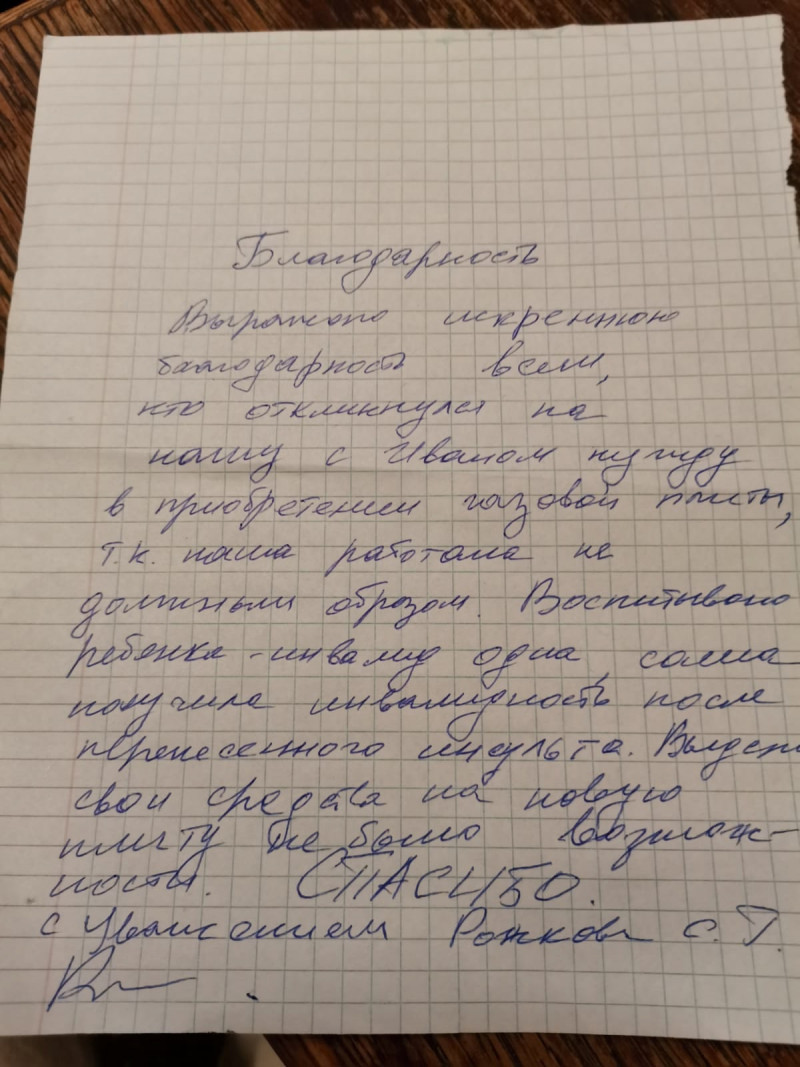 Благодарность
Выражаю искреннюю
благодарность всем,
кто откликнулся на
нашу с Иваном нужду
в приобретении газовой плиты,
т.к. наша работала не
должным образом. Воспитываю
ребёнка-инвалид одна, сама
получила инвалидность после
перенесенного инсульта.
свои средства на новую
плиту не было возмож-
ности. СПАСИБО.
с уважением Рожкова С.Г.